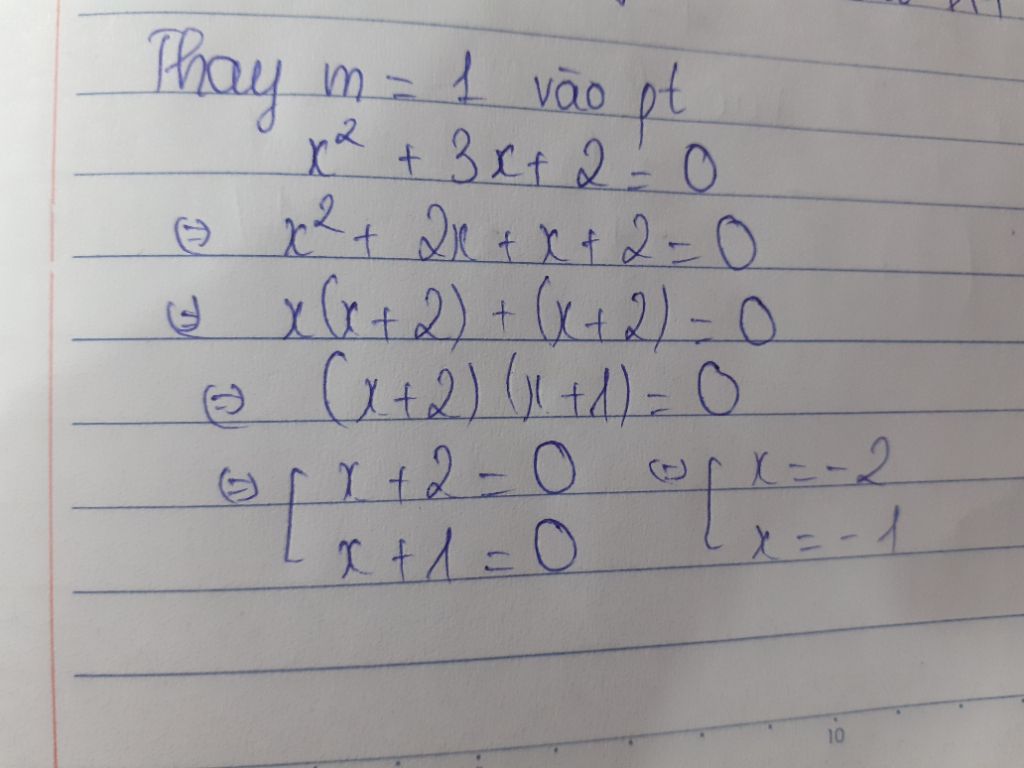 Thay m = 1 vào pt
x² + 3x + 2 = 0
⇔ x² + 2x + x + 2 = 0
⇔ x(x + 2) + (x + 2) = 0
⇔ (x + 2) (x + 1) = 0
⇔ [ x + 2 = 0 ⇔ [ x = -2
x + 1 = 0 x = -1
10